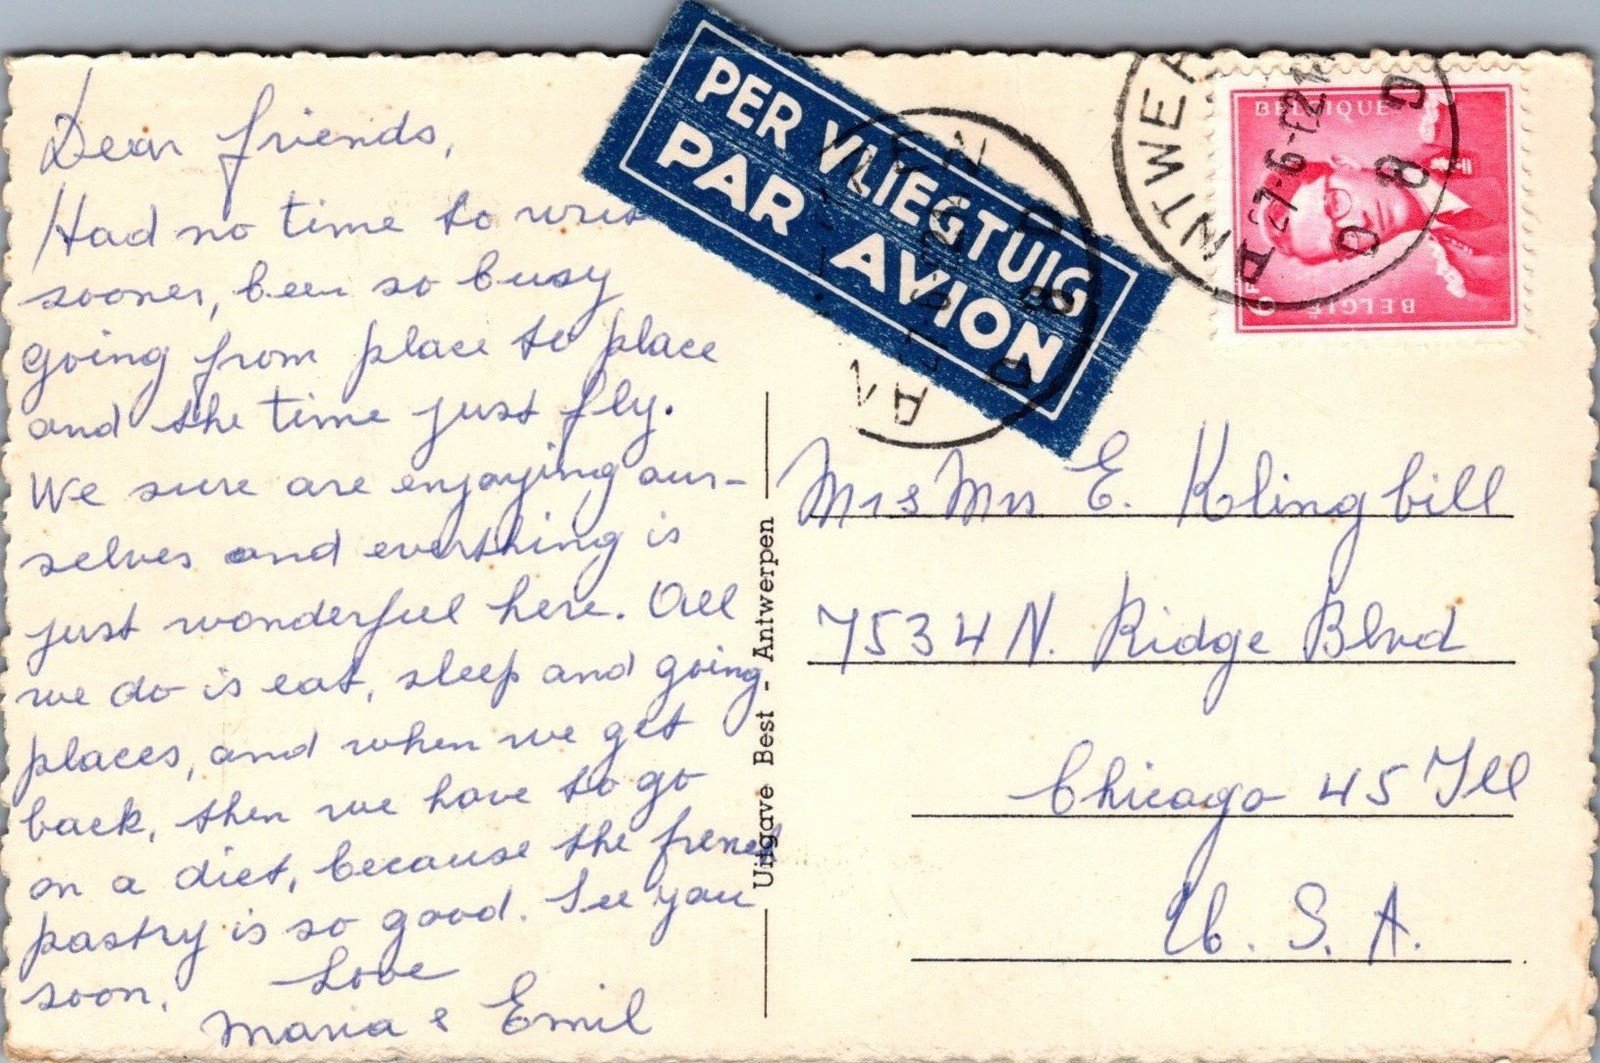 Dear friends,
Had no time to write
sooner, been so busy
going from place to place
and the time just fly.
We sure are enjoying our-
selves and everthing is
just wonderful here. All
we do is eat, sleep and going
places, and when we get
back, then we have to go
on a diet, because the french
pastry is so good. See you
soon. Love
Maria & Emil
Uitgave Best - Antwerpen
PER VLIEGTUIG
PAR AVION
ANTWER
BELGIQUE
BELGIË
6F
Mr & Mrs E. Klingbill
7534 N. Ridge Blvd
Chicago 45 Ill
U. S. A.